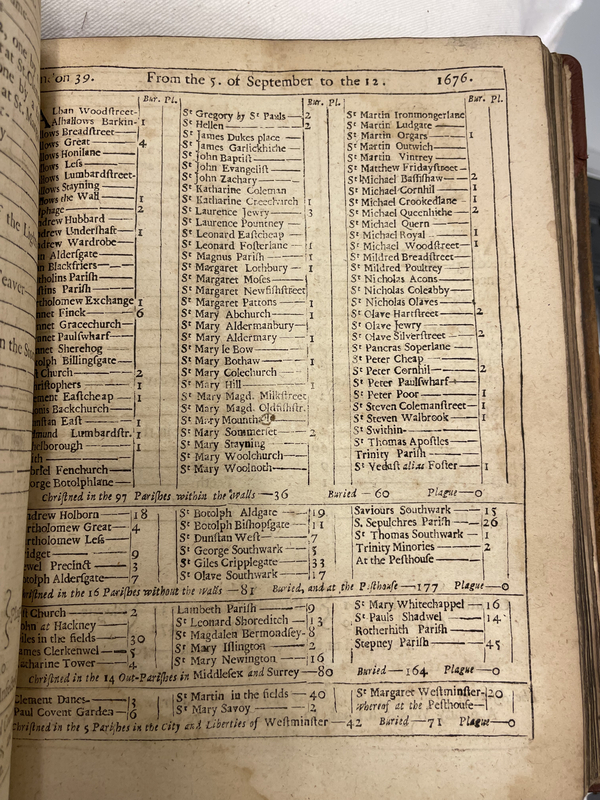 on 39. From the 5. of September to the 12. 1676.
Bur. Pl.
Lban Woodſtreet-
Alhallows Barkin- 1
lows Breadſtreet
lows Great 4
llows Honilane
llows Leſs
llows Lumbardſtreet-
llows Stayning
lows the Wall 1
lphage 2
drew Hubbard
drew Underſhaft 1
drew Wardrobe
n Alderſgate
n Blackfriers
tholins Pariſh
ſtins Pariſh
rtholomew Exchange 1
nnet Finck 6
nnet Gracechurch
nnet Paulſwharf
nnet Sherehog
otolph Billingſgate
t Church 2
riſtophers 1
ement Eaſtcheap 1
onis Backchurch
nſtan Eaſt 1
mund Lumbardſtr. 1
helborough 1
ith
briel Fenchurch
orge Botolphlane
Bur. Pl.
Sᵗ Gregory by Sᵗ Pauls 2
Sᵗ Hellen 2
Sᵗ James Dukes place
Sᵗ James Garlickhithe
Sᵗ John Baptiſt
Sᵗ John Evangeliſt
Sᵗ John Zachary
Sᵗ Katharine Coleman
Sᵗ Katharine Creechurch 1
Sᵗ Laurence Jewry 3
Sᵗ Laurence Pountney
Sᵗ Leonard Eaſtcheap
Sᵗ Leonard Foſterlane 1
Sᵗ Magnus Pariſh 1
Sᵗ Margaret Lothbury 1
Sᵗ Margaret Moſes
Sᵗ Margaret Newfiſhſtreet
Sᵗ Margaret Pattons 1
Sᵗ Mary Abchurch 1
Sᵗ Mary Aldermanbury
Sᵗ Mary Aldermary 1
Sᵗ Mary le Bow
Sᵗ Mary Bothaw 1
Sᵗ Mary Colechurch
Sᵗ Mary Hill 1
Sᵗ Mary Magd. Milkſtreet
Sᵗ Mary Magd. Oldfiſhſtr.
Sᵗ Mary
Sᵗ Mary Sommerſet 2
Sᵗ Mary Stayning
Sᵗ Mary Woolchurch
Sᵗ Mary Woolnoth
Bur. Pl.
Sᵗ Martin Ironmongerlane
Sᵗ Martin Ludgate
Sᵗ Martin Orgars 1
Sᵗ Martin Outwich
Sᵗ Martin Vintrey
Sᵗ Matthew Fridayſtreet
Sᵗ Michael Baſſiſhaw 2
Sᵗ Michael Cornhil 1
Sᵗ Michael Crookedlane 1
Sᵗ Michael Queenhithe 2
Sᵗ Michael Quern
Sᵗ Michael Royal 1
Sᵗ Michael Woodſtreet 1
Sᵗ Mildred Breadſtreet
Sᵗ Mildred Poultrey
Sᵗ Nicholas Acons
Sᵗ Nicholas Coleabby
Sᵗ Nicholas Olaves
Sᵗ Olave Hartſtreet 2
Sᵗ Olave Jewry
Sᵗ Olave Silverſtreet 2
Sᵗ Pancras Soperlane
Sᵗ Peter Cheap
Sᵗ Peter Cornhil 2
Sᵗ Peter Paulſwharf
Sᵗ Peter Poor 1
Sᵗ Steven Colemanſtreet 1
Sᵗ Steven Walbrook 1
Sᵗ Swithin
Sᵗ Thomas Apoſtles
Trinity Pariſh
Sᵗ Vedaſt alias Foſter 1
Chriſtned in the 97 Pariſhes within the Walls—36 Buried—60 Plague—0
ndrew Holborn 18
rtholomew Great 4
rtholomew Leſs
ridget 9
ewel Precinct 3
otolph Alderſgate 7
Sᵗ Botolph Aldgate 19
Sᵗ Botolph Biſhopſgate 11
Sᵗ Dunſtan Weſt 7
Sᵗ George Southwark 5
Sᵗ Giles Cripplegate 33
Sᵗ Olave Southwark 17
Saviours Southwark 15
S. Sepulchres Pariſh 26
Sᵗ Thomas Southwark 1
Trinity Minories 2
At the Peſthouſe
riſtned in the 16 Pariſhes without the Walls—81 Buried, and at the Peſthouſe—177 Plague—0
ſt Church 2
ohn at Hackney
iles in the fields 30
ames Clerkenwel 5
atharine Tower 4
Lambeth Pariſh 9
Sᵗ Leonard Shoreditch 13
Sᵗ Magdalen Bermondſey- 8
Sᵗ Mary Iſlington 2
Sᵗ Mary Newington 16
Sᵗ Mary Whitechappel 16
Sᵗ Pauls Shadwel 14
Rotherhith Pariſh
Stepney Pariſh 45
Chriſtned in the 14 Out-Pariſhes in Middleſex and Surrey—80 Buried—164 Plague—0
Clement Danes 3
Paul Covent Garden 6
Sᵗ Martin in the fields 40
Sᵗ Mary Savoy 2
Sᵗ Margaret Weſtminſter- 20
whereof at the Peſthouſe
Chriſtned in the 5 Pariſhes in the City and Liberties of Weſtminſter—42 Buried—71 Plague—0